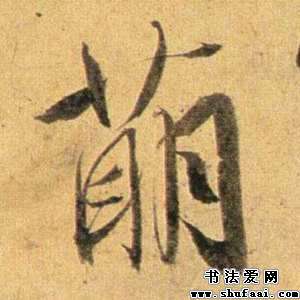 萌
书法爱网
www.shufaai.com